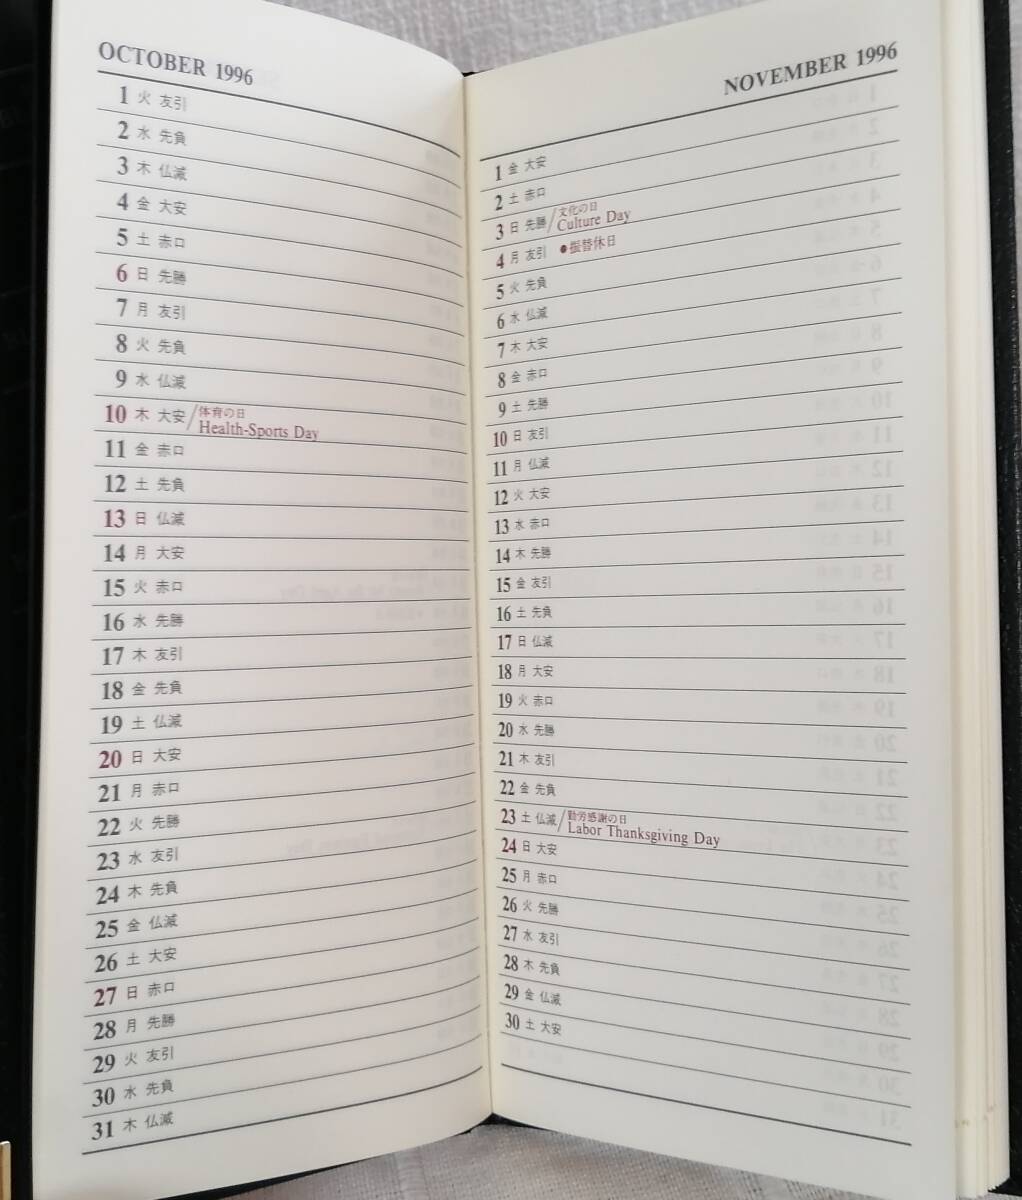 OCTOBER 1996
1 火 友引
2 水 先負
3 木 仏滅
4 金 大安
5 土 赤口
6 日 先勝
7 月 友引
8 火 先負
9 水 仏滅
10 木 大安/体育の日
Health-Sports Day
11 金 赤口
12 土 先負
13 日 仏滅
14 月 大安
15 火 赤口
16 水 先勝
17 木 友引
18 金 先負
19 土 仏滅
20 日 大安
21 月 赤口
22 火 先勝
23 水 友引
24 木 先負
25 金 仏滅
26 土 大安
27 日 赤口
28 月 先勝
29 火 友引
30 水 先負
31 木 仏滅
NOVEMBER 1996
1 金 大安
2 土 赤口
3 日 先勝/文化の日
Culture Day
4 月 友引 ●振替休日
5 火 先負
6 水 仏滅
7 木 大安
8 金 赤口
9 土 先勝
10 日 友引
11 月 仏滅
12 火 大安
13 水 赤口
14 木 先勝
15 金 友引
16 土 先負
17 日 仏滅
18 月 大安
19 火 赤口
20 水 先勝
21 木 友引
22 金 先負
23 土 仏滅/勤労感謝の日
Labor Thanksgiving Day
24 日 大安
25 月 赤口
26 火 先勝
27 水 友引
28 木 先負
29 金 仏滅
30 土 大安